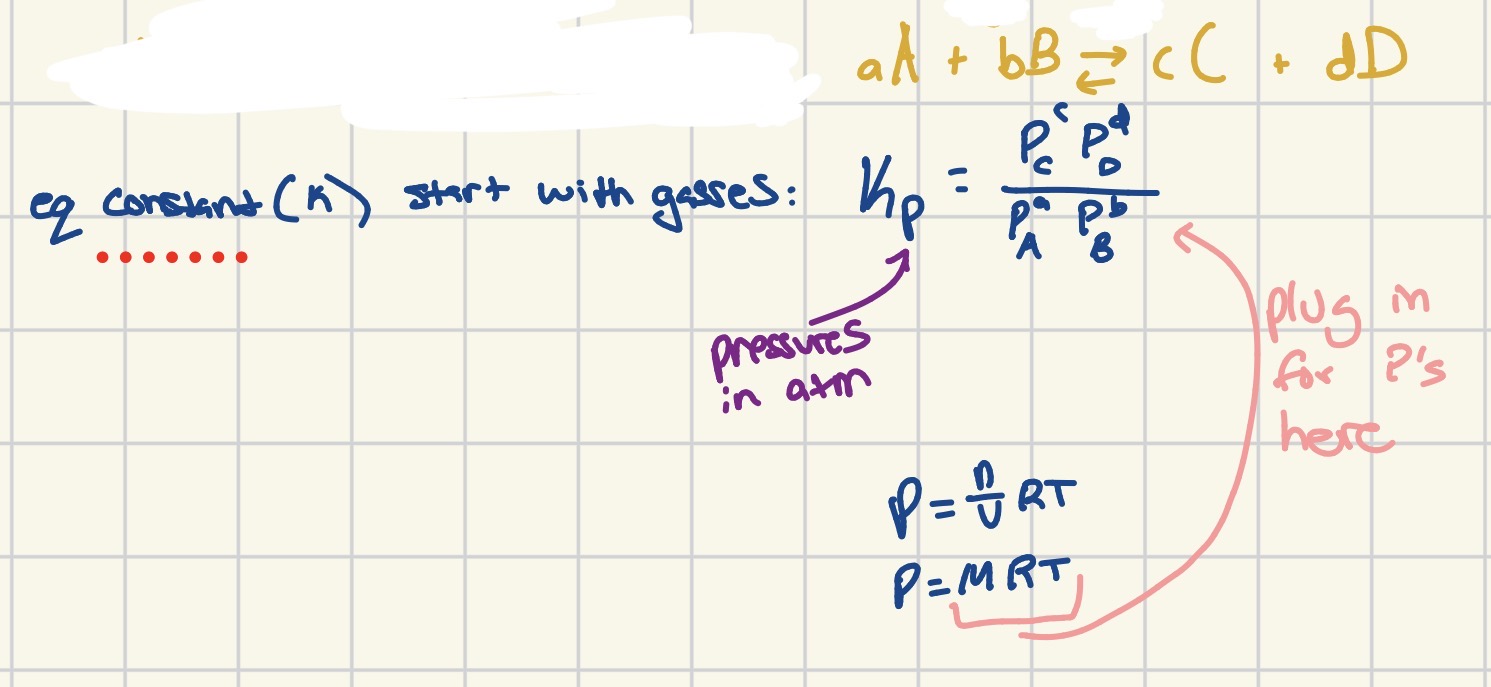 aA + bB ⇄ cC + dD
eq constant (K) start with gasses: Kp = P_C^c P_D^d / P_A^a P_B^b
pressures
in atm
plug in
for P's
here
P = n/V RT
P = MRT